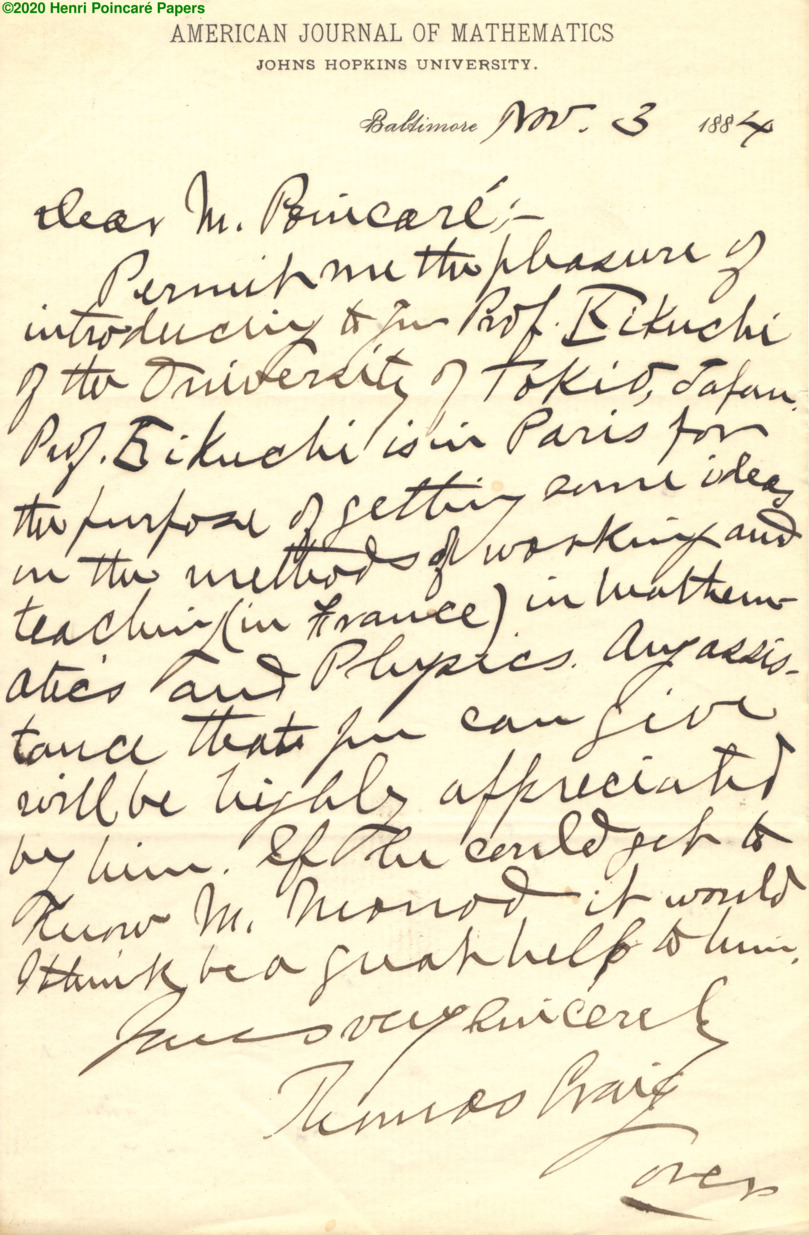 ©2020 Henri Poincaré Papers
AMERICAN JOURNAL OF MATHEMATICS
JOHNS HOPKINS UNIVERSITY.
Baltimore Nov. 3 1884
Dear M. Poincaré;—
Permit me the pleasure of
introducing to you Prof. Kikuchi
of the University of Tokio, Japan.
Prof. Kikuchi is in Paris for
the purpose of getting some ideas
in the methods of working and
teaching (in France) in Mathem-
atics and Physics. Any assis-
tance that you can give
will be highly appreciated
by him. If he could get to
know M. Monod it would
I think be a great help to him.
Yours very sincerely
Thomas Craig
over